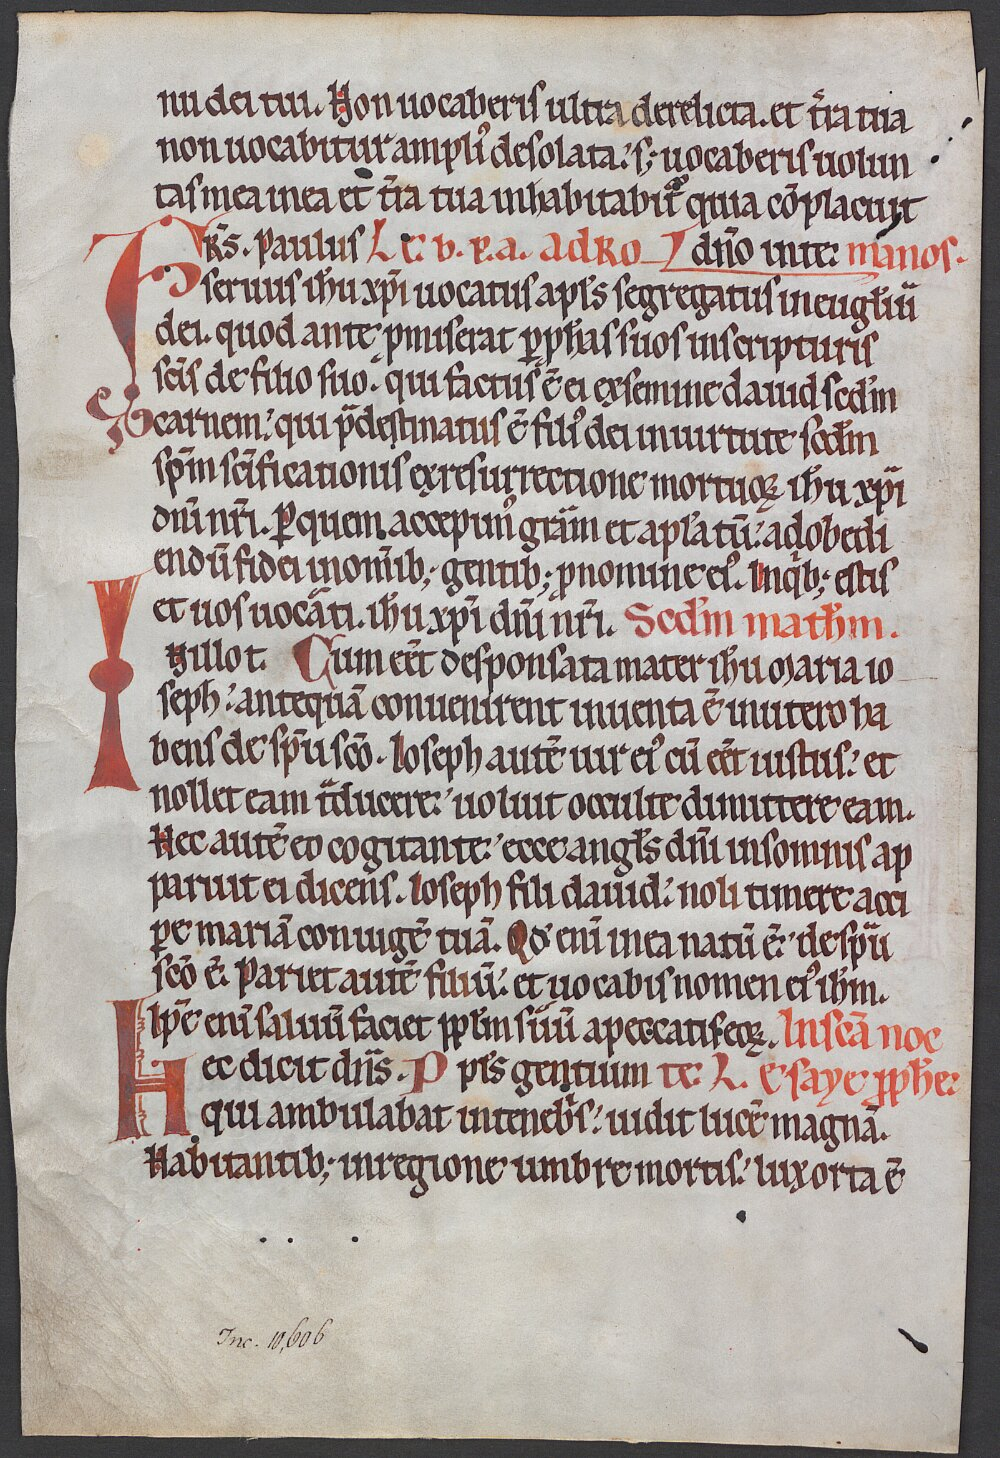 nu dei tui. Non uocaberis ultra derelicta. et t̄ra tua
non uocabitur ampliꝰ desolata. s; uocaberis uolun
tas mea in ea et t̄ra tua inhabitabit᷑ quia cōplacuit
FR̄S. Paulus L c. b. P. a. ad Ro dn̄o in te. manos.
seruus ih̄u xp̄i uocatus apl̄s segregatus in eugl̄iū
dei. quod ante ꝓmiserat ꝑ ꝓph̄as suos in scripturis
sc̄is de filio suo. qui factus ē ei ex semine dauid scd̄m
carnem. qui p̄destinatus ē filiꝰ dei in uirtute scd̄m
sp̄m sc̄ificationis ex resurrectione mortuoꝝ ih̄u xp̄i
dn̄i nr̄i. Per quem accepimꝰ grām et apl̄atū. ad obedi
endū fidei in om̄ib; gentib; ꝓ nomine eiꝰ. In qⁱb; estis
et uos uocāti. ih̄u xp̄i dn̄i nr̄i. Scd̄m math̄m.
In illo t. Cum eēt desponsata mater ih̄u maria io
seph. antequā conuenirent inuenta ē in utero ha
bens de sp̄u sc̄o. Ioseph autē uir eiꝰ cū eēt iustus. et
nollet eam t̄ducere. uoluit occulte dimittere eam.
Hec autē eo cogitante. ecce angl̄s dn̄i in somnis ap
paruit ei dicens. Ioseph fili dauid. noli timere acci
ꝑe mariā coniugē tuā. Qd̄ enī in ea natū ē. de sp̄u
sc̄o ē. Pariet autē filiū. et uocabis nomen eiꝰ ih̄m.
Ip̄e enī saluū faciet pp̄l̄m suū a peccatis eoꝝ. In sc̄a noc
Hec dicit dn̄s. P pl̄s gentium te. L. esaye ꝓph̄e.
qui ambulabat in teneb̄s. uidit lucē magnā.
Habitantib; in regione umbre mortis. lux orta ē
Inc. 10,606